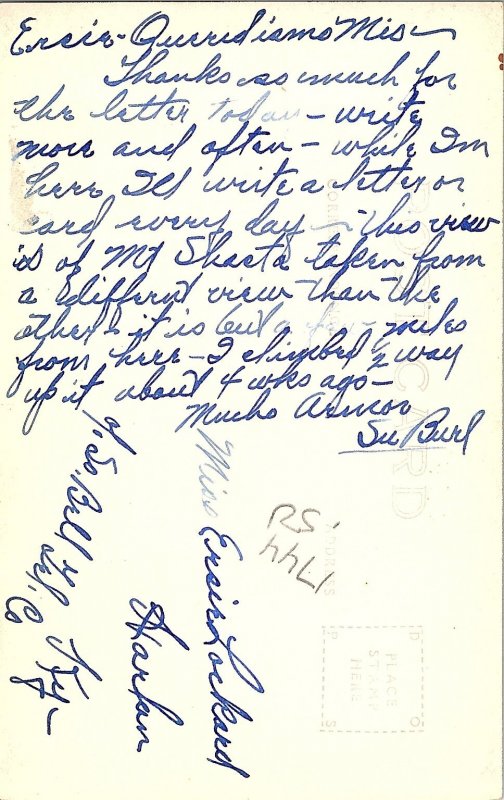 Ersie - Queridisamo Mis -
Thanks so much for
the letter today - write
more and often - while I'm
here I'll write a letter or
card every day - this view
is of Mt Shasta taken from
a different view than the
other - it is but a few miles
from here - I climbed 1/2 way
up it about 4 wks ago -
Mucho Armor
Su Burl
Miss Ersie Lockard
Harlan
Ky -
% So. Bell
Tel. Co
1744
POST CARD
ADDRESS
PLACE
STAMP
HERE